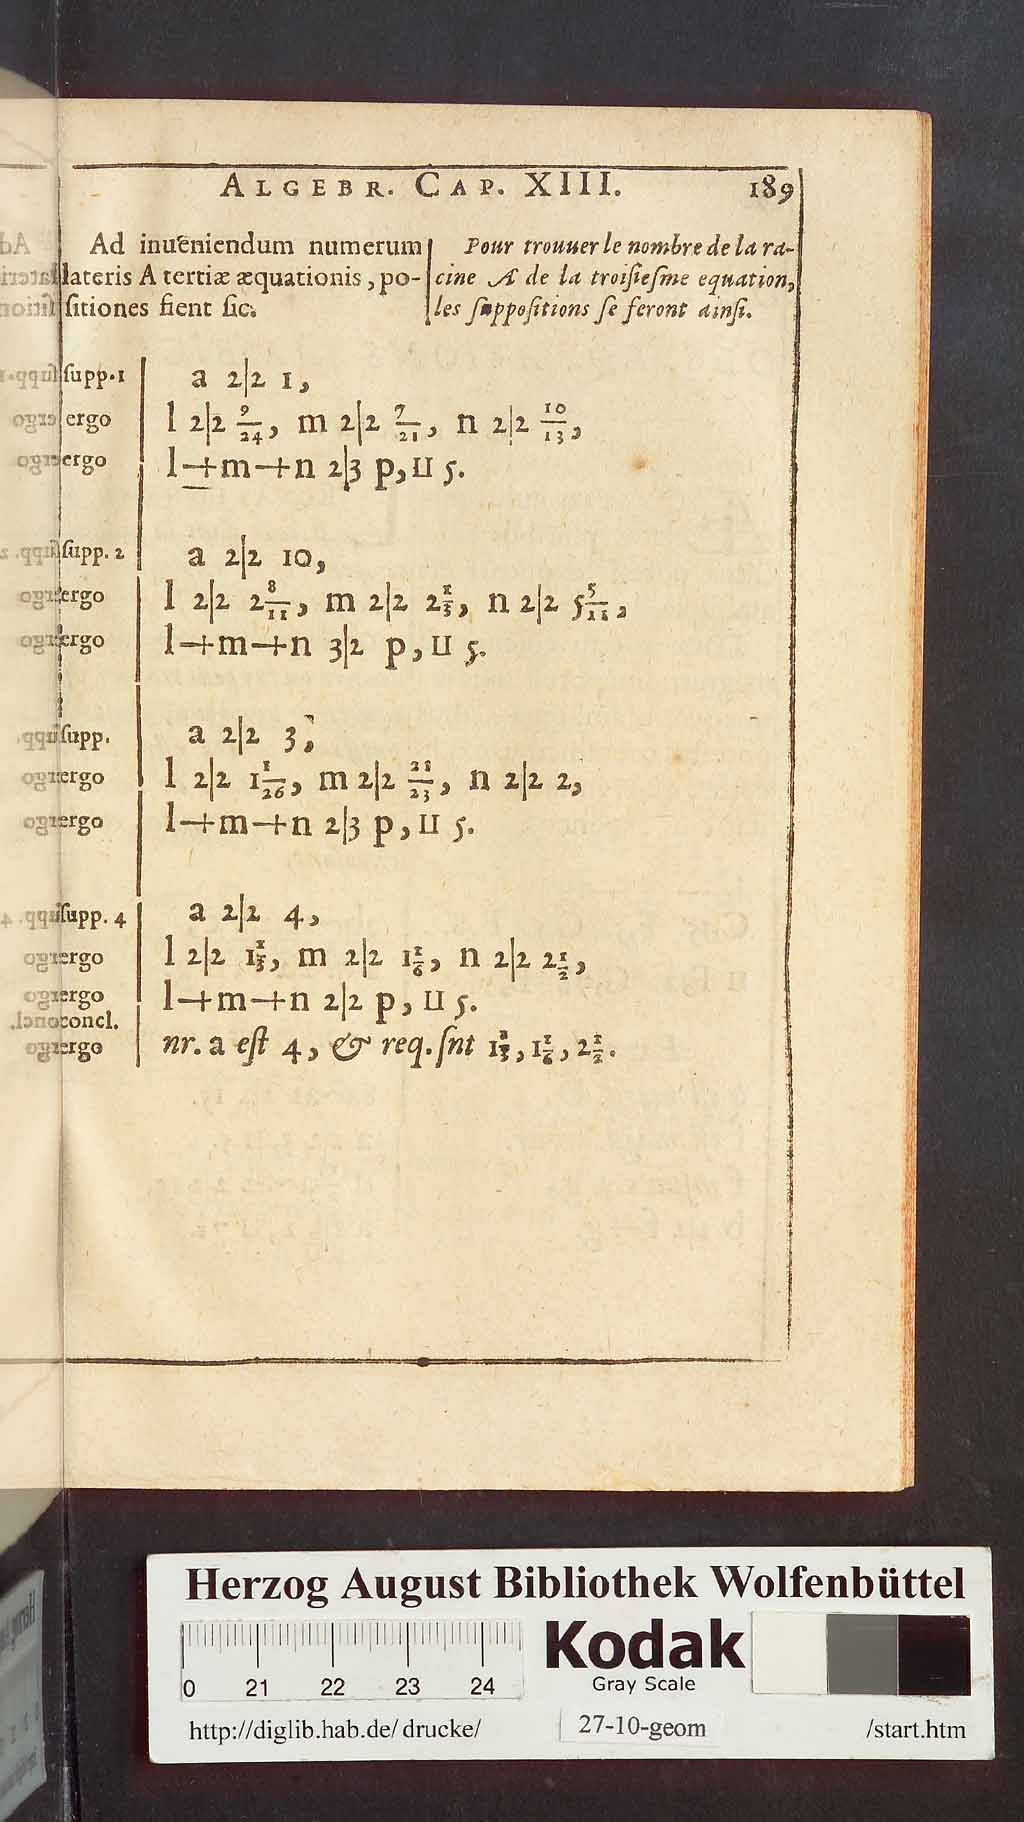 ALGEBR. CAP. XIII. 189
Ad inuēniendum numerum
lateris A tertiæ æquationis, po-
sitiones fient sic.
Pour trouuer le nombre de la ra-
cine A de la troisiesme equation,
les suppositions se feront ainsi.
supp. 1 a 2|2 1,
ergo l 2|2 9/24, m 2|2 7/21, n 2|2 10/13,
ergo l+m+n 2|3 p, II 5.
supp. 2 a 2|2 10,
ergo l 2|2 2 8/11, m 2|2 2 2/3, n 2|2 5 5/11,
ergo l+m+n 3|2 p, II 5.
supp. a 2|2 3,
ergo l 2|2 1 1/26, m 2|2 21/23, n 2|2 2,
ergo l+m+n 2|3 p, II 5.
supp. 4 a 2|2 4,
ergo l 2|2 1 1/3, m 2|2 1 1/6, n 2|2 2 1/2,
ergo l+m+n 2|2 p, II 5.
concl.
ergo nr. a est 4, & req. snt 1 1/3, 1 1/6, 2 1/2.
Herzog August Bibliothek Wolfenbüttel
0 21 22 23 24
Kodak
Gray Scale
http://diglib.hab.de/drucke/ 27-10-geom /start.htm